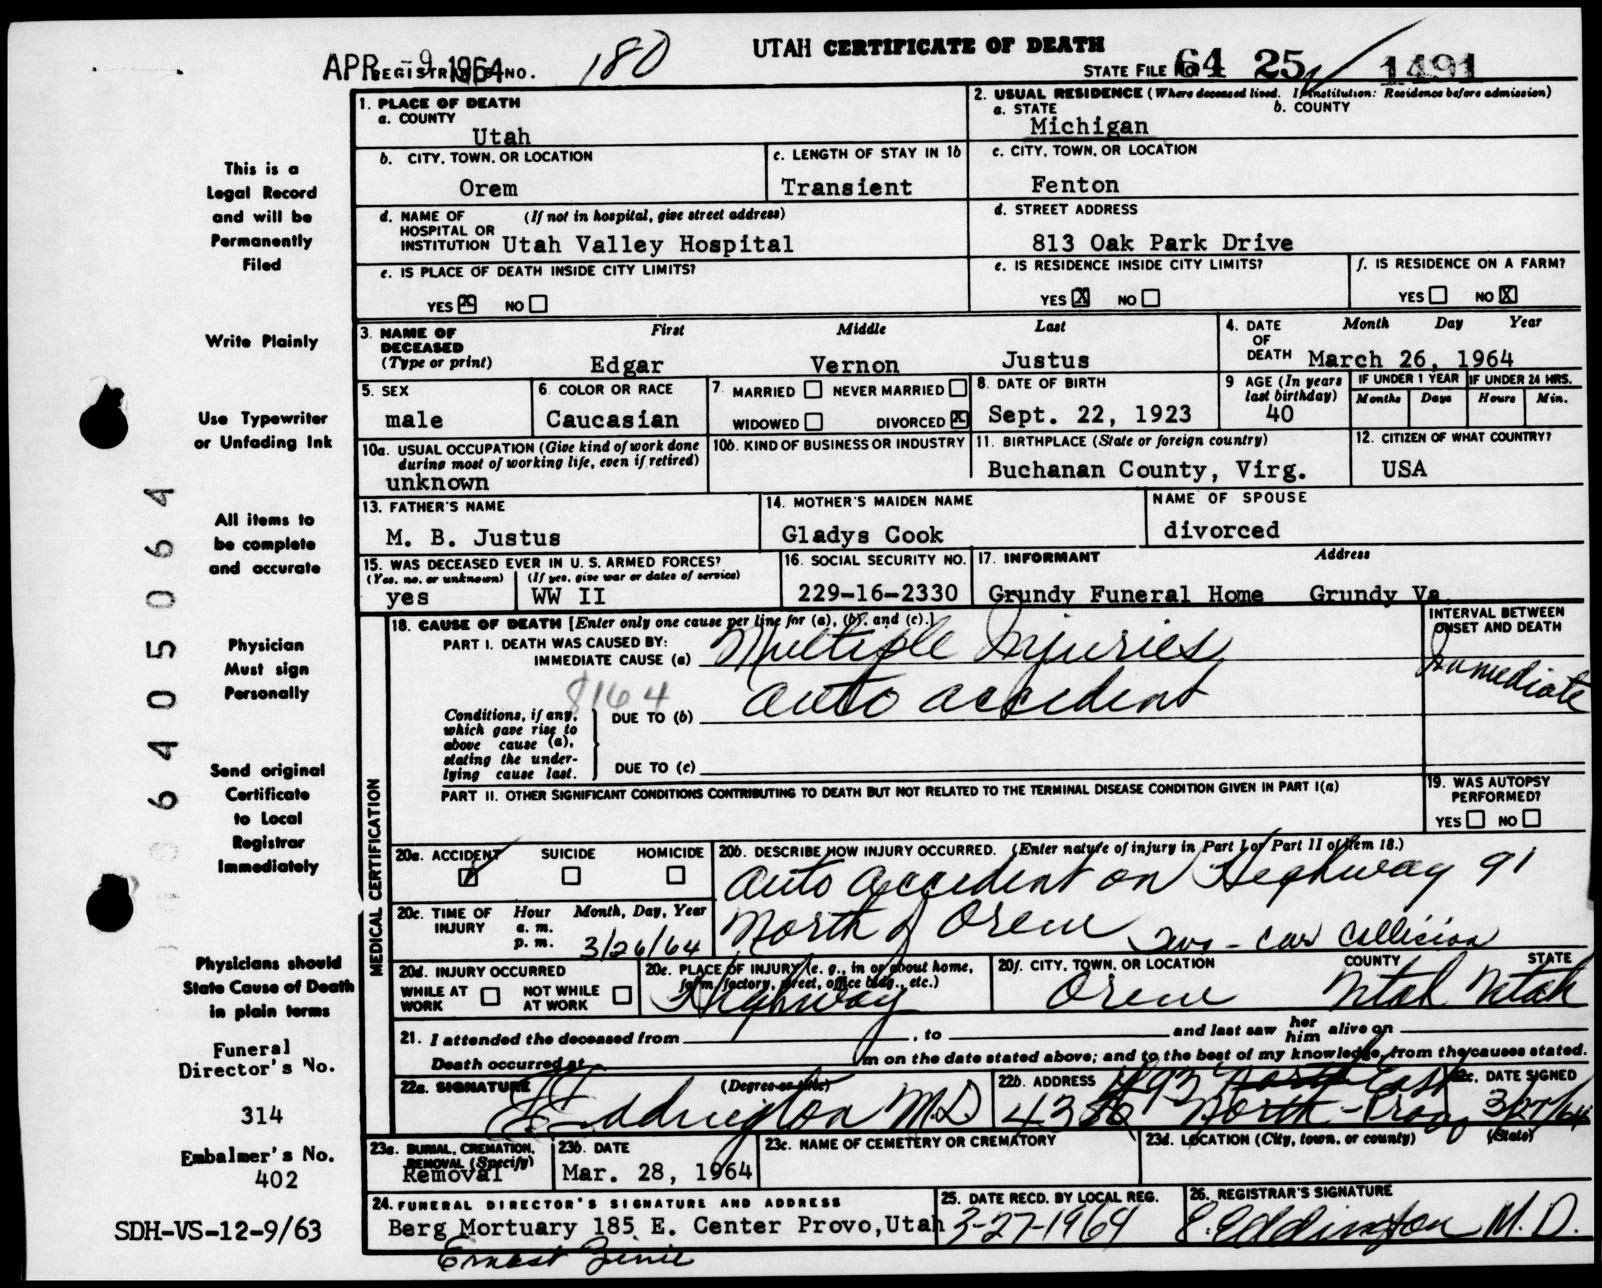 UTAH CERTIFICATE OF DEATH
APR -9 1964
REGISTRAR'S NO. 180
STATE FILE NO. 64 25 1491
1. PLACE OF DEATH
a. COUNTY
Utah
2. USUAL RESIDENCE (Where deceased lived. If institution: Residence before admission)
a. STATE b. COUNTY
Michigan
b. CITY, TOWN, OR LOCATION
Orem
c. LENGTH OF STAY IN 1b
Transient
c. CITY, TOWN, OR LOCATION
Fenton
d. NAME OF (If not in hospital, give street address)
HOSPITAL OR
INSTITUTION Utah Valley Hospital
d. STREET ADDRESS
813 Oak Park Drive
e. IS PLACE OF DEATH INSIDE CITY LIMITS?
YES X NO
e. IS RESIDENCE INSIDE CITY LIMITS?
YES X NO
f. IS RESIDENCE ON A FARM?
YES NO X
3. NAME OF First Middle Last
DECEASED
(Type or print) Edgar Vernon Justus
4. DATE Month Day Year
OF
DEATH March 26, 1964
5. SEX
male
6. COLOR OR RACE
Caucasian
7. MARRIED NEVER MARRIED
WIDOWED DIVORCED X
8. DATE OF BIRTH
Sept. 22, 1923
9 AGE (In years
last birthday)
40
IF UNDER 1 YEAR IF UNDER 24 HRS.
Months Days Hours Min.
10a. USUAL OCCUPATION (Give kind of work done
during most of working life, even if retired)
unknown
10b. KIND OF BUSINESS OR INDUSTRY
11. BIRTHPLACE (State or foreign country)
Buchanan County, Virg.
12. CITIZEN OF WHAT COUNTRY?
USA
13. FATHER'S NAME
M. B. Justus
14. MOTHER'S MAIDEN NAME
Gladys Cook
NAME OF SPOUSE
divorced
15. WAS DECEASED EVER IN U. S. ARMED FORCES?
(Yes, no, or unknown) (If yes, give war or dates of service)
yes WW II
16. SOCIAL SECURITY NO.
229-16-2330
17. INFORMANT Address
Grundy Funeral Home Grundy Va
MEDICAL CERTIFICATION
18. CAUSE OF DEATH [Enter only one cause per line for (a), (b), and (c).]
INTERVAL BETWEEN
ONSET AND DEATH
PART I. DEATH WAS CAUSED BY:
IMMEDIATE CAUSE (a) Multiple Injuries
Immediate
8164
Conditions, if any,
which gave rise to
above cause (a),
stating the under-
lying cause last.
DUE TO (b) auto accident
DUE TO (c)
PART II. OTHER SIGNIFICANT CONDITIONS CONTRIBUTING TO DEATH BUT NOT RELATED TO THE TERMINAL DISEASE CONDITION GIVEN IN PART I(a)
19. WAS AUTOPSY
PERFORMED?
YES NO
20a. ACCIDENT SUICIDE HOMICIDE
20b. DESCRIBE HOW INJURY OCCURRED. (Enter nature of injury in Part I or Part II of item 18.)
auto accident on Highway 91
North of Orem Two-car collision
20c. TIME OF Hour Month, Day, Year
INJURY a. m.
p. m. 3/26/64
20d. INJURY OCCURRED
WHILE AT WORK NOT WHILE AT WORK
20e. PLACE OF INJURY (e. g., in or about home,
farm, factory, street, office bldg., etc.)
Highway
20f. CITY, TOWN, OR LOCATION COUNTY STATE
Orem Utah Utah
21. I attended the deceased from , to and last saw her him alive on
Death occurred at m on the date stated above; and to the best of my knowledge, from the causes stated.
22a. SIGNATURE (Degree or title)
Eddington M.D.
22b. ADDRESS
North Provo
22c. DATE SIGNED
3/27/64
23a. BURIAL, CREMATION,
REMOVAL (Specify)
Removal
23b. DATE
Mar. 28, 1964
23c. NAME OF CEMETERY OR CREMATORY
23d. LOCATION (City, town, or county) (State)
24. FUNERAL DIRECTOR'S SIGNATURE AND ADDRESS
Berg Mortuary 185 E. Center Provo, Utah
Ernest
25. DATE RECD. BY LOCAL REG.
3-27-1964
26. REGISTRAR'S SIGNATURE
E. Eddington M.D.
This is a
Legal Record
and will be
Permanently
Filed
Write Plainly
Use Typewriter
or Unfading Ink
All items to
be complete
and accurate
Physician
Must sign
Personally
Send original
Certificate
to Local
Registrar
Immediately
Physicians should
State Cause of Death
in plain terms
Funeral
Director's No.
314
Embalmer's No.
402
SDH-VS-12-9/63
6405064